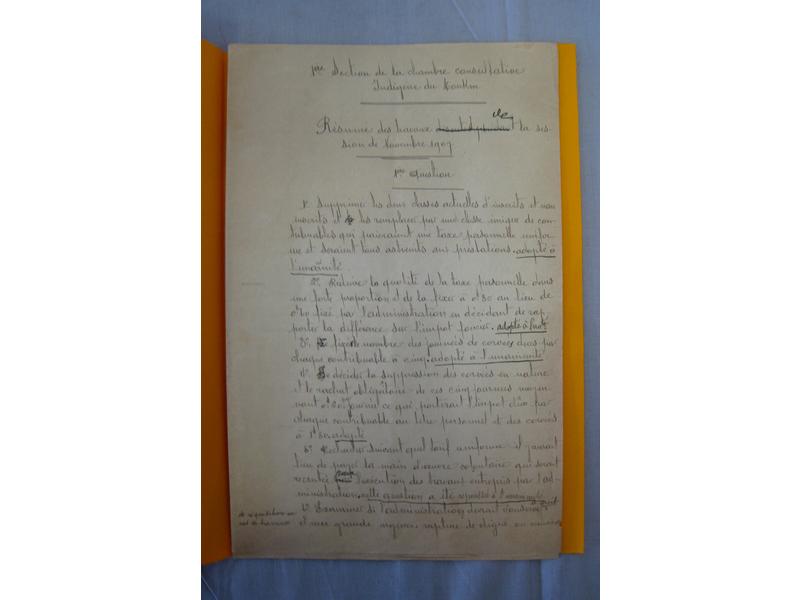 1ère Section de la chambre consultative
Indigène du Tonkin
Résumé des travaux de la ses-
sion de Novembre 1907
1ère Question
1º Supprimer les deux classes actuelles d'inscrits et non
inscrits et les remplacer par une classe unique de con-
tribuables qui paieraient une taxe personnelle unifor-
me et seraient tous astreints aux prestations. adopté à
l'unanimité
2º. Réduire la quotité de la taxe personnelle dans
une forte proportion et de la fixer à 0$30 au lieu de
fixé par l'administration en décidant de rap-
porter la différence sur l'impôt foncier. adopté à l'unté
3º. fixer le nombre des journées de corvées dues par
chaque contribuable à cinq. adopté à l'unanimité
4º. décider la suppression des corvées en nature
et le rachat obligatoire de ces cinq journées moyen-
nant ce qui porterait l'impôt dûm par
chaque contribuable au titre personnel et des corvées
à adopté
5º. suivant quel tarif uniforme il
lieu de payer la main d'œuvre volontaire qui serait
l'exécution des travaux entrepris par l'ad-
ministration. cette question a été à l'
6º. Examiner si l'administration devrait
et une grande urgence, rupture de digue ou